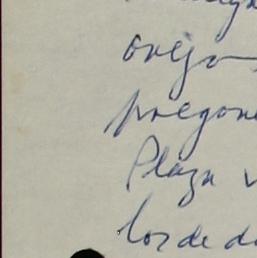 oveja
pregone
Plaza v
los de d